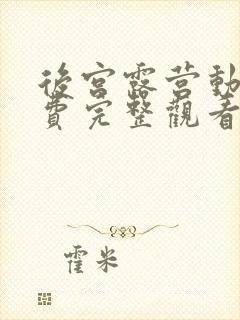 後宮露营動
費完整觀看
霍米